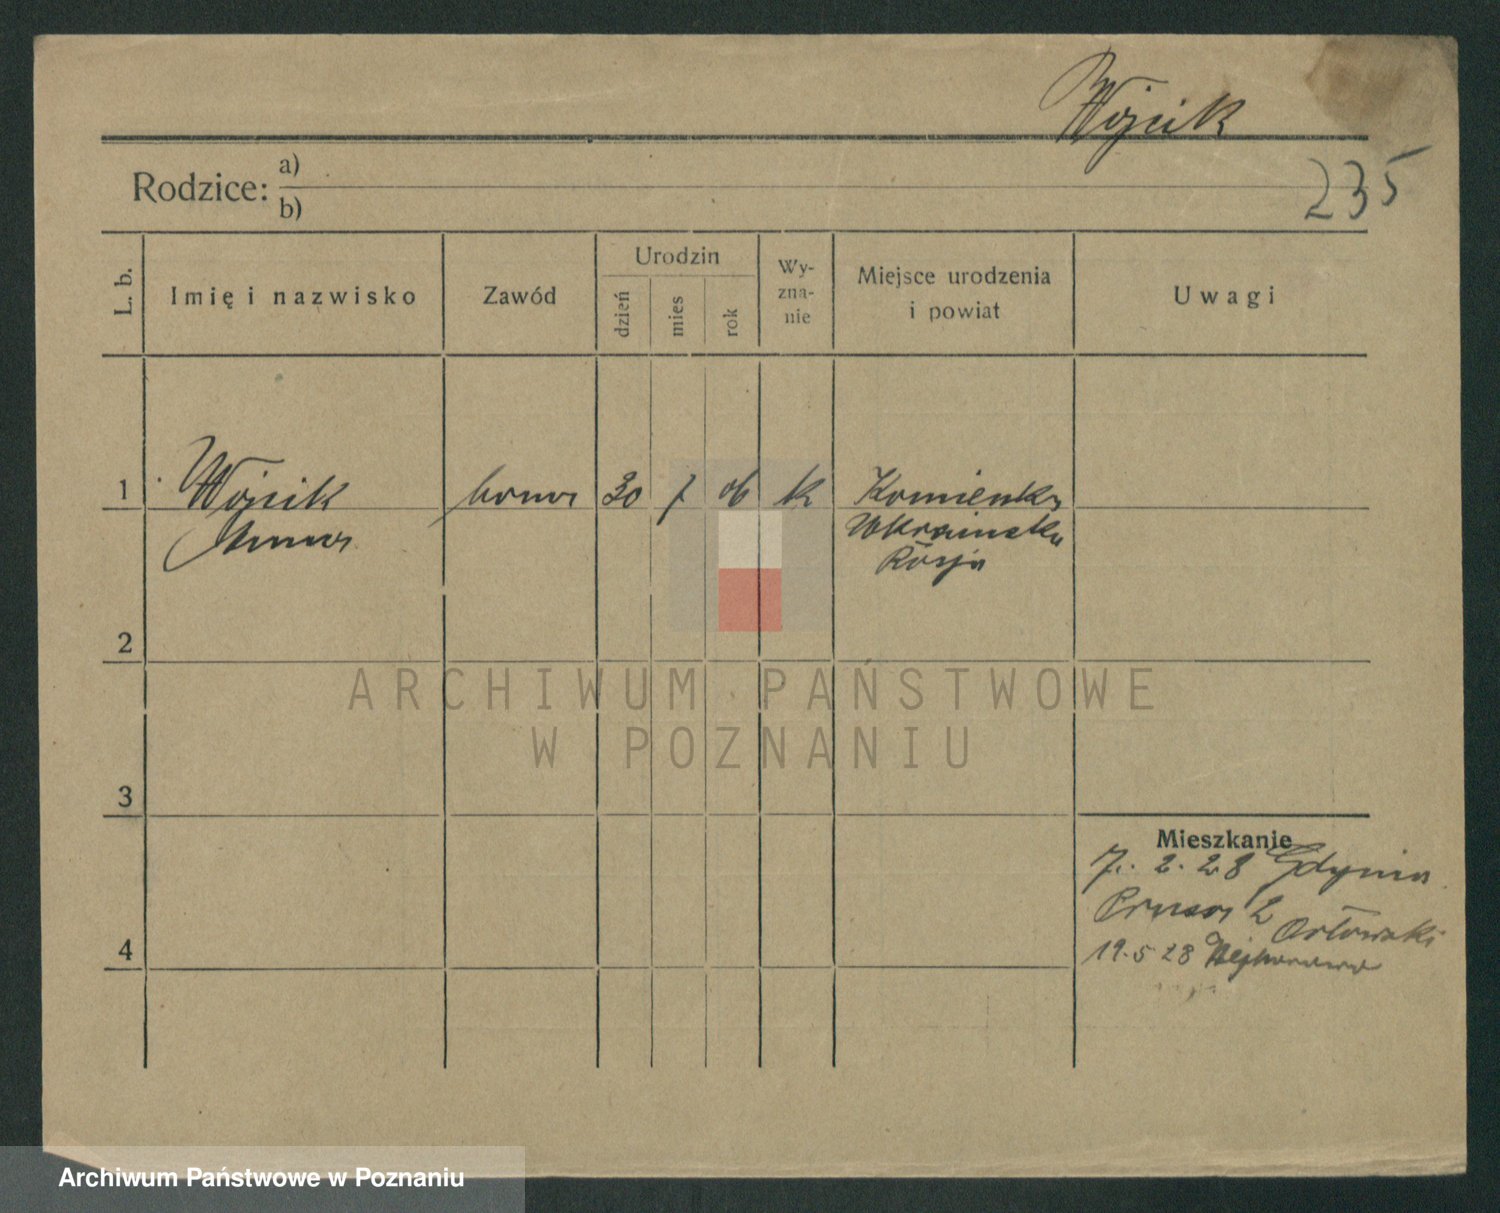 Wójcik
Rodzice: a)
b)
235
L. b.
Imię i nazwisko
Zawód
Urodzin
dzień
mies
rok
Wy-
zna-
nie
Miejsce urodzenia
i powiat
Uwagi
1 Wójcik bona 30 7 06 k Kamienka
Anna
Ukrainska
Rosja
2
3
4
Mieszkanie
7. 2. 28 Gdynia
Prusa 2 Orłowski
19. 5 28 Wejherowo
ARCHIWUM PAŃSTWOWE
W POZNANIU
Archiwum Państwowe w Poznaniu